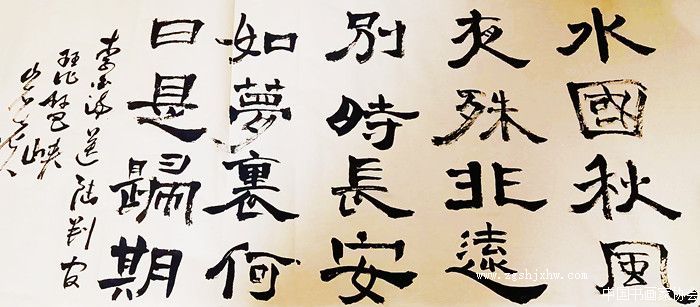 水國秋風
夜殊非遠
別時長安
如夢裏何
日是歸期
李白詩送陆判官
琵琶峡
www.zgshjxhw.com
中国书画家协会